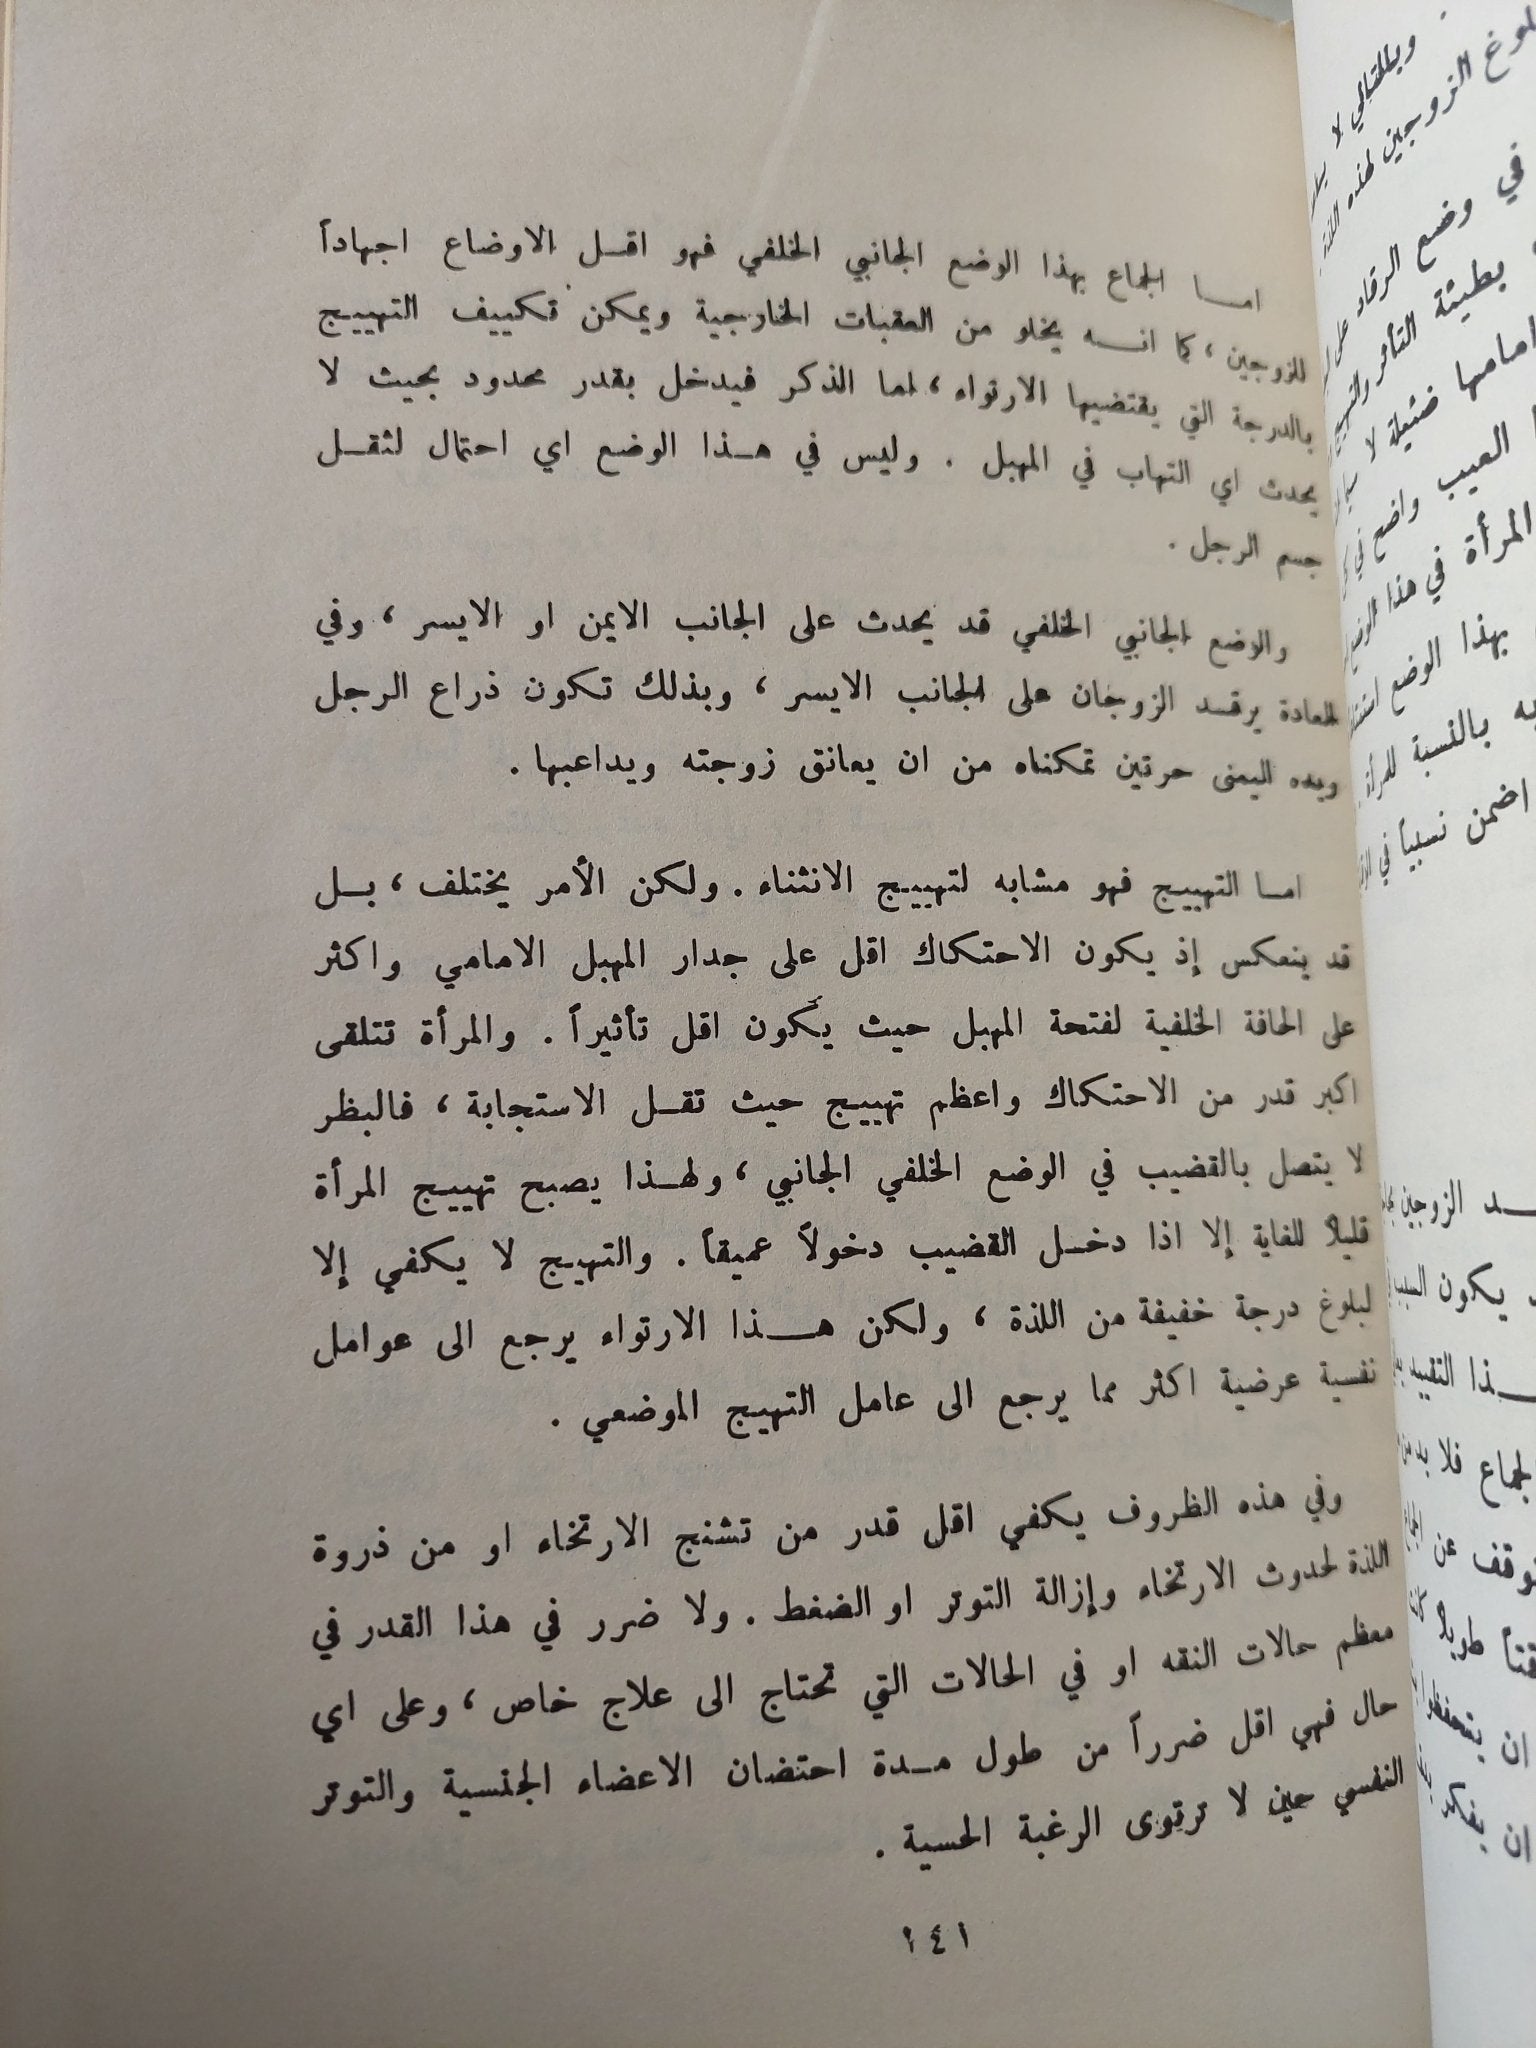 امـا الجماع بهذا الوضع الجانبي الخلفي فهو اقـل الاوضاع اجهاداً
للزوجين ، كما انـه يخلو من العقبات الخارجية ويمكن تكييف التهييج
بالدرجة التي يقتضيها الارتواء ، اما الذكر فيدخل بقدر محدود بحيث لا
يحدث اي التهاب في المهبل . وليس في هـذا الوضع اي احتمال لثقـل
جسم الرجل .
والوضع الجانبي الخلفي قد يحدث على الجانب الايمن او الايسر ، وفي
العادة يرقـد الزوجان على الجانب الايسر ، وبذلك تكون ذراع الرجل
ويده اليمنى حرتين تمكناه من ان يعانق زوجته ويداعبها .
امـا التهييج فهو مشابه لتهييج الانثناء . ولكن الأمر يختلف ، بـل
قد ينعكس إذ يكون الاحتكاك اقل على جدار المهبل الامامي واكثر
على الحافة الخلفية لفتحة المهبل حيث يكون اقل تأثيراً . والمرأة تتلقى
اكبر قدر من الاحتكاك واعظم تهييج حيث تقـل الاستجابة ، فالبظر
لا يتصل بالقضيب في الوضع الخلفي الجانبي ، ولهـذا يصبح تهييج المرأة
قليلاً للغاية إلا اذا دخـل القضيب دخولاً عميقاً . والتهيج لا يكفي إلا
لبلوغ درجة خفيفة من اللذة ، ولكن هـذا الارتواء يرجع الى عوامل
نفسية عرضية اكثر مما يرجع الى عامل التهيج الموضعي .
وفي هذه الظروف يكفي اقل قدر من تشنج الارتخاء او من ذروة
اللذة لحدوث الارتخاء وإزالة التوتر او الضغط . ولا ضرر في هذا القدر في
معظم حالات النقه او في الحالات التي تحتاج الى علاج خاص ، وعلى اي
حال فهي اقل ضرراً من طول مـدة احتضان الاعضاء الجنسية والتوتر
النفسي حين لا ترتوى الرغبة الحسية .
١٤١
وبالتالي لا
بلوغ الزوجين لهذه اللذة
في وضع الرقاد على
بطيئة التأثر والتهيج
امامها ضئيلة لا سيما
العيب واضح في
المرأة في هذا الوضع
بهذا الوضع
بالنسبة للمرأة
اضمن نسبياً في
الزوجين
يكون السبب
التقييد
الجماع فلا بد من
عن
طويلاً
ان يتحفظوا
ان يفكر